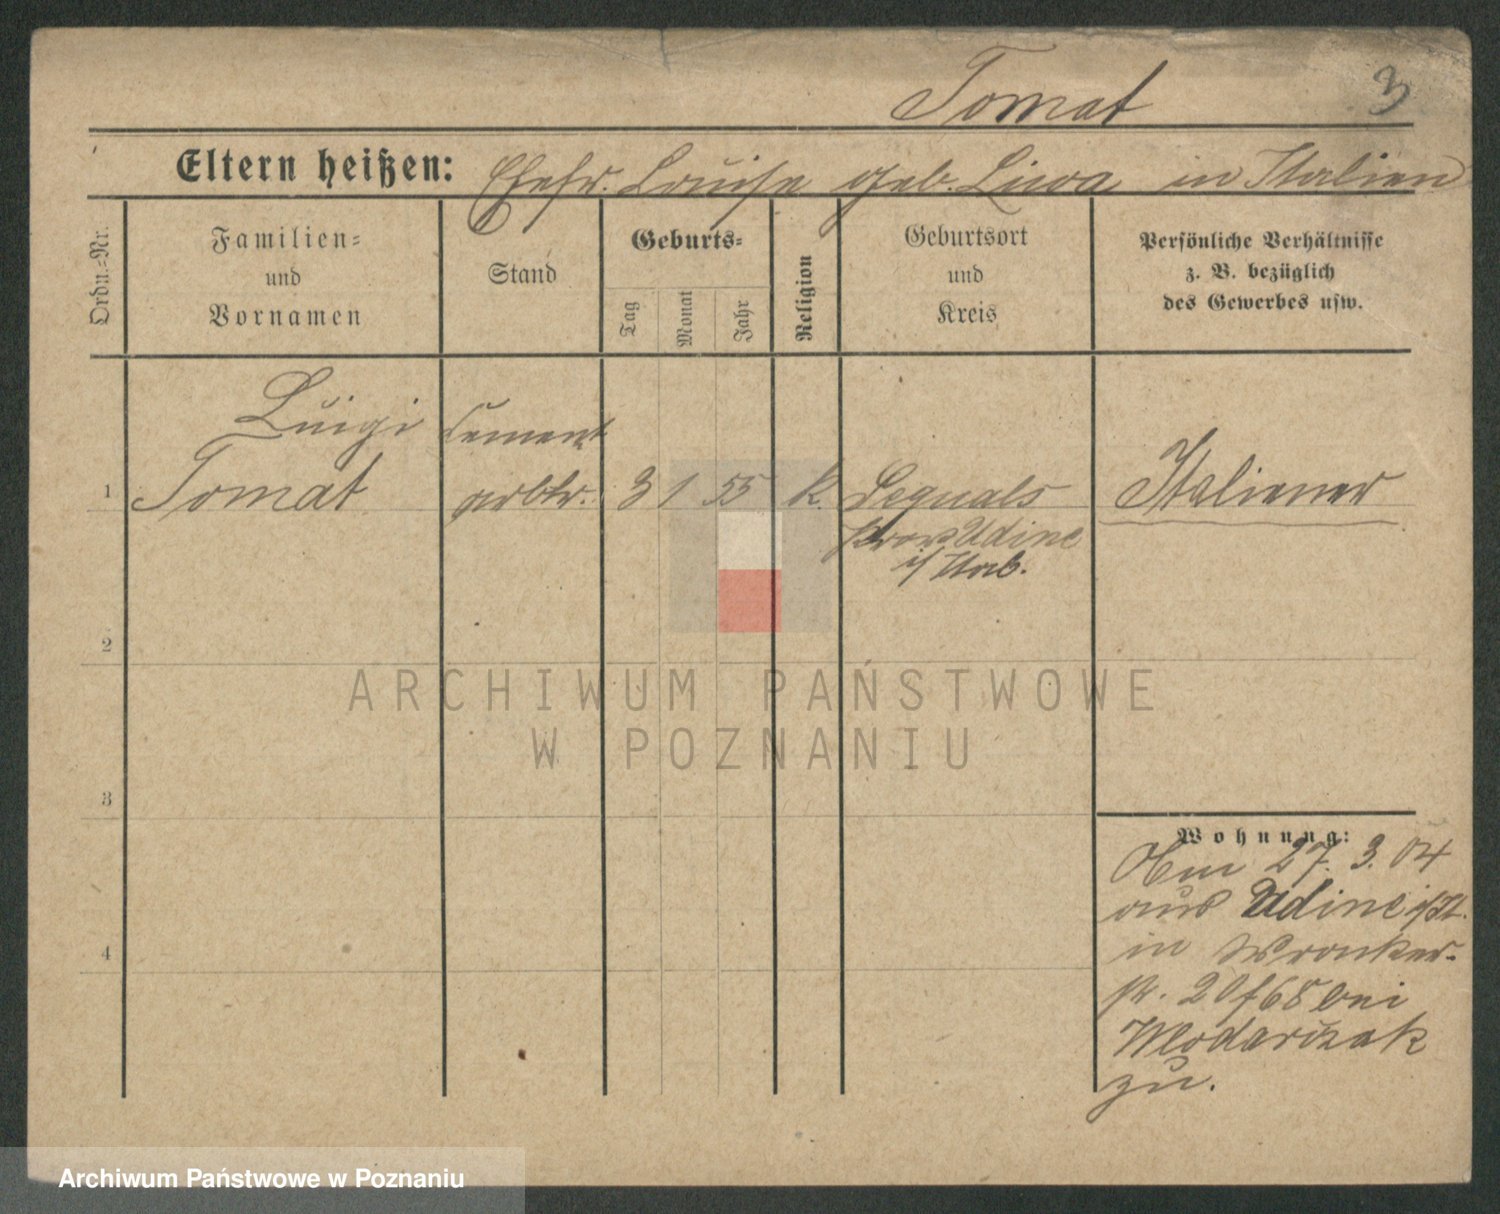 Tomat 3
Eltern heißen: Ehefr. Louise geb. Liwa in Italien
Ordn.-Nr.
Familien-
und
Vornamen
Stand
Geburts-
Tag
Monat
Jahr
Religion
Geburtsort
und
Kreis
Persönliche Verhältnisse
z. B. bezüglich
des Gewerbes usw.
Luigi Cement
1 Tomat arbtr. 3 1 55 k. Sequals Italiener
Prov Udine
i/Ital.
2
ARCHIWUM PAŃSTWOWE
W POZNANIU
3
Wohnung:
Am 27. 3. 04
aus Udine i/It.
in Wronker-
str. 20 bei
Wlodarczak
zu.
4
Archiwum Państwowe w Poznaniu